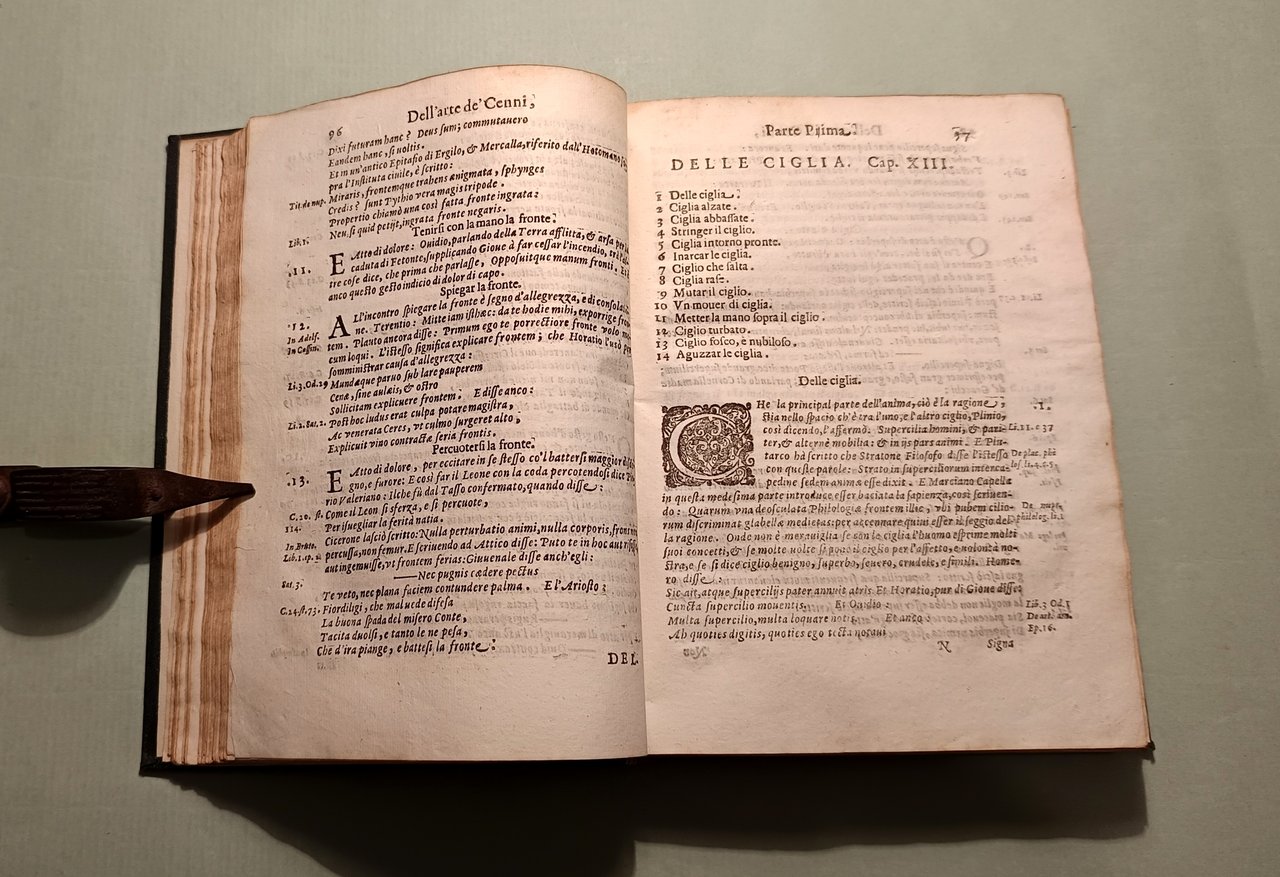 96
Dell'arte de' Cenni,
Dixi futuram hanc? Deus sum; commutauero
Eandem hanc, si uoltis.
Et in un'antico Epitafio di Ergilo, & Mercalla, riferito dall'Hotomano
pra l'Instituta ciuile, è scritto:
Tit. de nup. Miraris, frontemque trahens ænigmata, sphynges
Credis? sunt Pythio vera magis tripode.
Propertio chiamò una così fatta fronte ingrata:
Lib. 1. Neu, si quid petijt, ingrata fronte negaris.
Tenirsi con la mano la fronte.
.11. E Atto di dolore: Ouidio, parlando della Terra afflitta, & arsa per la
caduta di Fetonte, supplicando Gioue à far cessar l'incendio,
tre cose dice, che prima che parlasse, Opposuitque manum fronti.
anco questo gesto indicio di dolor di capo.
Spiegar la fronte.
.12. A Ll'incontro spiegare la fronte è segno d'allegrezza, e di consola
In Adelf. ne. Terentio: Mitte iam isthæc: da te hodie mihi, exporrige
In Cassin. tem. Plauto ancora disse: Primum ego te porrectiore fronte volo
cum loqui. L'istesso significa explicare frontem; che Horatio l'usò
somministrar causa d'allegrezza:
Li.3.Od.29 Mundæque paruo sub lare pauperem
Cenæ, sine aulæis, & ostro
Sollicitam explicuere frontem. E disse anco:
Li.2.Sat.2. Post hoc ludus erat culpa potare magistra,
Ac venerata Ceres, vt culmo surgeret alto,
Explicuit vino contractæ seria frontis.
Percuotersi la fronte.
.13. E Atto di dolore, per eccitare in se stesso co'l battersi maggior
gno, e furore: E così far il Leone con la coda percotendosi dice
rio Valeriano: ilche fù dal Tasso confermato, quando disse:
C.20. st. Come il Leon si sferza, e si percuote,
114. Per isuegliar la ferità natia.
In Bruto. Cicerone lasciò scritto: Nulla perturbatio animi, nulla corporis, frons
Lib.1.ep. 1. percussa, non femur. E scriuendo ad Attico disse: Puto te in hoc aut
autingemuisse, vt frontem ferias: Giuuenale disse anch'egli:
Sat. 3. —Nec pugnis cædere pectus
Te veto, nec plana faciem contundere palma. E l'Ariosto:
C.24.st.73. Fiordiligi, che mal uede difesa
La buona spada del misero Conte,
Tacita duolsi, e tanto le ne pesa,
Che d'ira piange, e battesi la fronte.
DEL-
Parte Prima.
97
DELLE CIGLIA. Cap. XIII.
1 Delle ciglia.
2 Ciglia alzate.
3 Ciglia abbassate.
4 Stringer il ciglio.
5 Ciglia intorno pronte.
6 Inarcar le ciglia.
7 Ciglio che salta.
8 Ciglia rase.
9 Mutar il ciglio.
10 Vn mouer di ciglia.
11 Metter la mano sopra il ciglio.
12 Ciglio turbato.
13 Ciglio fosco, e nubiloso.
14 Aguzzar le ciglia.
Delle ciglia.
CHe la principal parte dell'anima, ciò è la ragione, .1.
stia nello spacio ch'è tra l'uno, e l'altro ciglio, Plinio,
così dicendo, l'affermò: Supercilia homini, & pari- Li.11.c 37
ter, & alternè mobilia: & in ijs pars animi. E Plu-
tarco hà scritto che Stratone Filosofo disse l'istesso De plac. phi
con queste parole: Strato in superciliorum interca- los. li.4.c.5.
pedine sedem animæ esse dixit. E Marciano Capella
in questa medesima parte introduce esser baciata la sapienza, così scriuen-
do: Quarum vna deosculata Philologiæ frontem illic, vbi pubem cilio- De nupt.
rum discriminat glabellæ medietas: per accennare quini esser il seggio del philolog. li.1
la ragione. Onde non è merauiglia se con le ciglia l'huomo esprime molti
suoi concetti, & se molte uolte si pone il ciglio per l'affetto, e uolontà no-
stra, e se si dice ciglio benigno, superbo, seuero, crudele, e simili. Home-
ro disse:
Sic ait, atque supercilijs pater annuit atris Et Horatio, pur di Gioue disse:
Cuncta supercilio mouentis. Et Ouidio: Lib.3 Od.1
Multa supercilio, multa loquare notis. Et anco: De art. am.
Ab quoties digitis, quoties ego tecta notaui Ep.16.
N
Signa